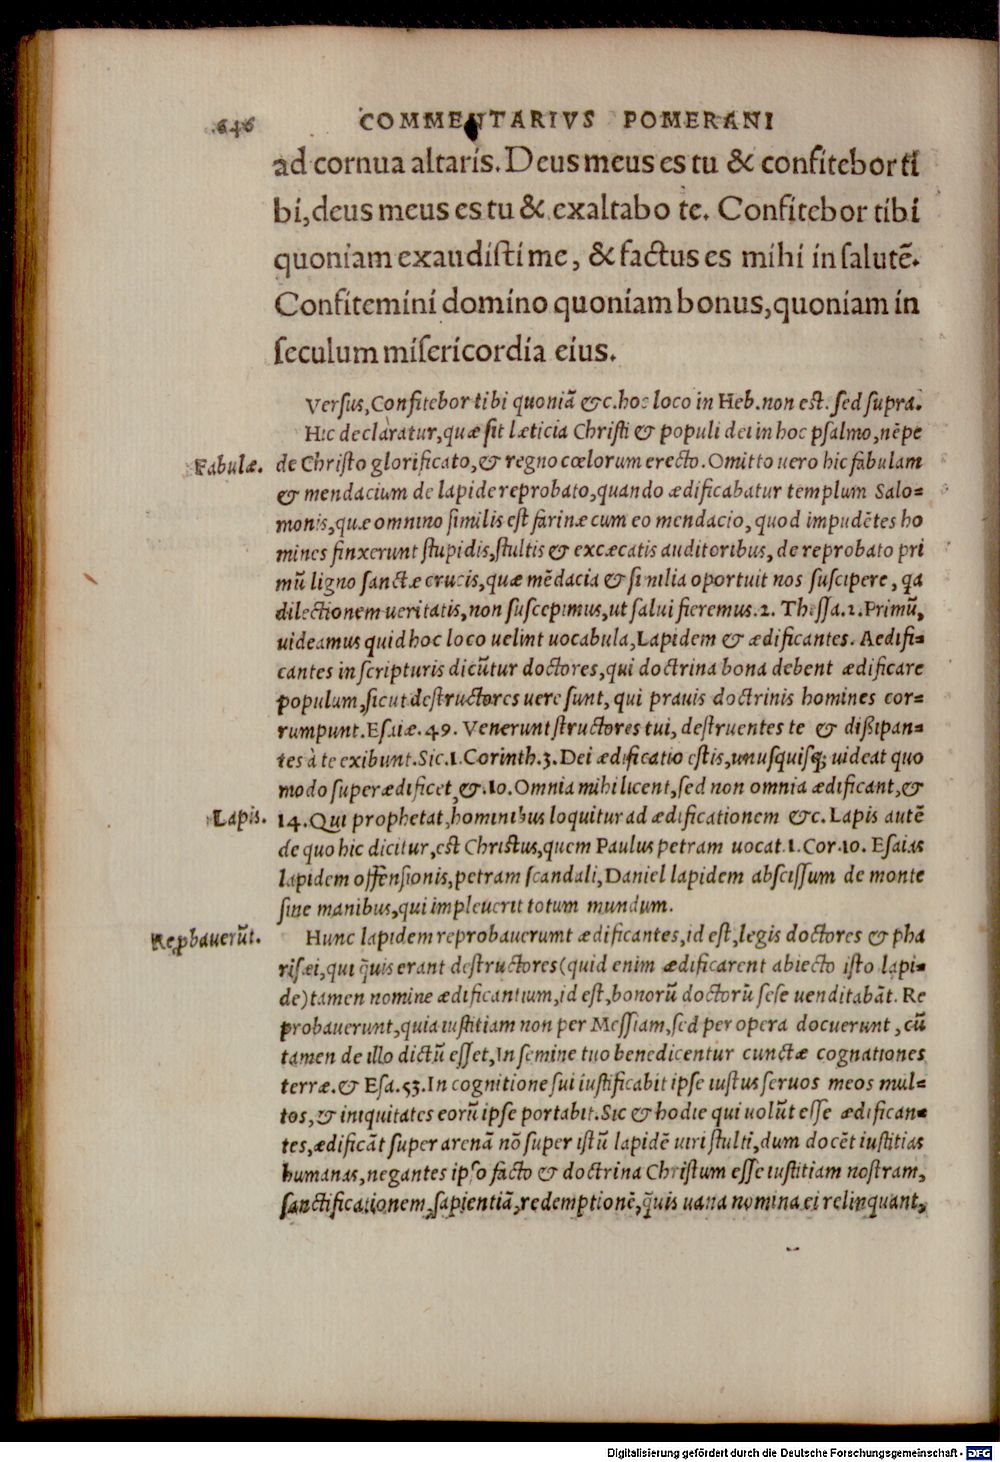 646 COMMENTARIVS POMERANI
ad cornua altaris. Deus meus es tu & confitebor ti
bi, deus meus es tu & exaltabo te. Confitebor tibi
quoniam exaudisti me, & factus es mihi in salutē.
Confitemini domino quoniam bonus, quoniam in
seculum misericordia eius.
Versus, Confitebor tibi quoniā &c. hoc loco in Heb. non est. sed supra.
Hic declaratur, quæ sit læticia Christi & populi dei in hoc psalmo, nēpe
Fabulæ. de Christo glorificato, & regno cœlorum erecto. Omitto uero hic fabulam
& mendacium de lapide reprobato, quando ædificabatur templum Salo=
monis, quæ omnino similis est farinæ cum eo mendacio, quod impudētes ho
mines finxerunt stupidis, stultis & excæcatis auditoribus, de reprobato pri
mū ligno sanctæ crucis, quæ mēdacia & similia oportuit nos suscipere, qa
dilectionem ueritatis, non suscepimus, ut salui fieremus. 2. Thessa. 2. Primū,
uideamus quid hoc loco uelint uocabula, Lapidem & ædificantes. Aedifi=
cantes in scripturis dicūtur doctores, qui doctrina bona debent ædificare
populum, sicut destructores uere sunt, qui prauis doctrinis homines cor=
rumpunt. Esaiæ. 49. Venerunt structores tui, destruentes te & dißipan=
tes à te exibunt. Sic. 1. Corinth. 3. Dei ædificatio estis, unusquisq; uideat quo
modo superædificet, &. 10. Omnia mihi licent, sed non omnia ædificant, &
Lapis. 14. Qui prophetat, hominibus loquitur ad ædificationem &c. Lapis autē
de quo hic dicitur, est Christus, quem Paulus petram uocat. 1. Cor. 10. Esaias
lapidem offensionis, petram scandali, Daniel lapidem abscissum de monte
sine manibus, qui impleuerit totum mundum.
Reꝓbauerūt. Hunc lapidem reprobauerumt ædificantes, id est, legis doctores & pha
risæi, qui q̄uis erant destructores (quid enim ædificarent abiecto isto lapi=
de) tamen nomine ædificantium, id est, bonorū doctorū sese uenditabāt. Re
probauerunt, quia iustitiam non per Messiam, sed per opera docuerunt, cū
tamen de illo dictū esset, In semine tuo benedicentur cunctæ cognationes
terræ. & Esa. 53. In cognitione sui iustificabit ipse iustus seruos meos mul=
tos, & iniquitates eorū ipse portabit. Sic & hodie qui uolūt esse ædifican=
tes, ædificāt super arenā nō super istū lapidē uiri stulti, dum docēt iustitias
humanas, negantes ipso facto & doctrina Christum esse iustitiam nostram,
sanctificationem, sapientiā, redemptionē, q̄uis uana nomina ei relinquant,
Digitalisierung gefördert durch die Deutsche Forschungsgemeinschaft - DFG